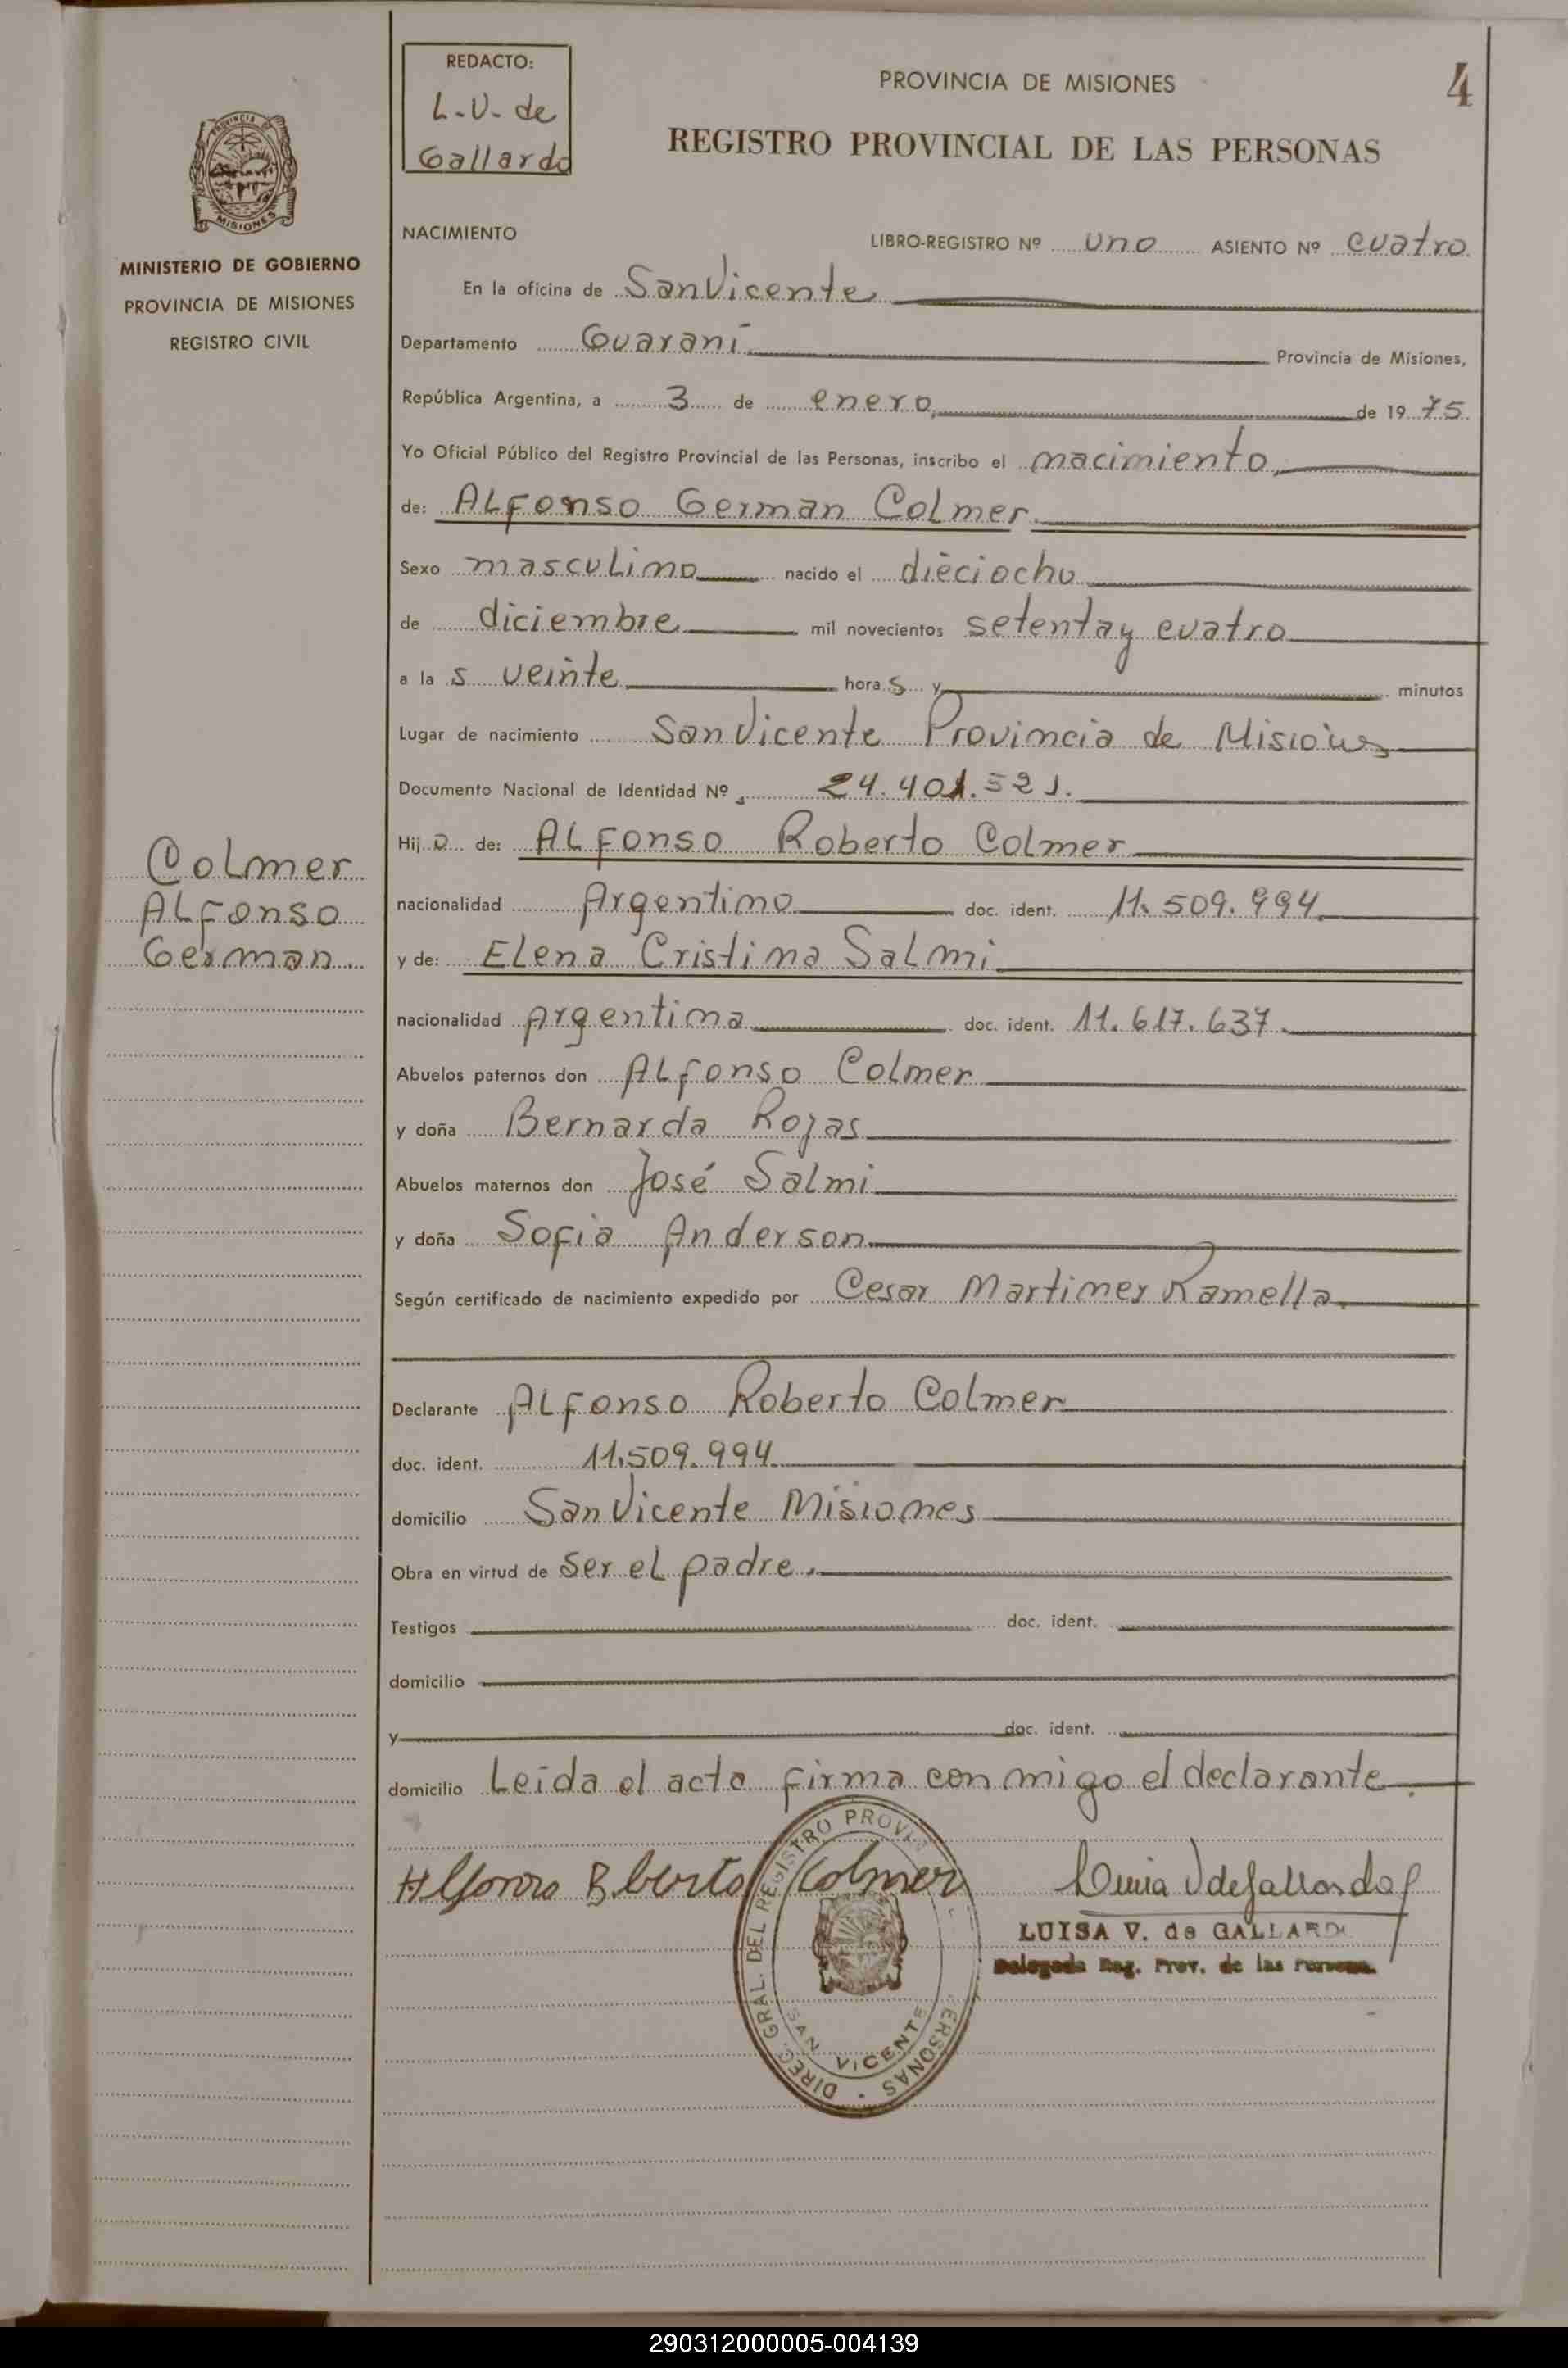 REDACTO:
L.V. de
Gallardo
PROVINCIA DE MISIONES
4
REGISTRO PROVINCIAL DE LAS PERSONAS
PROVINCIA DE
MISIONES
MINISTERIO DE GOBIERNO
PROVINCIA DE MISIONES
REGISTRO CIVIL
NACIMIENTO
LIBRO-REGISTRO Nº uno ASIENTO Nº cuatro
En la oficina de San Vicente
Departamento Guaraní Provincia de Misiones,
República Argentina, a 3 de enero, de 1975
Yo Oficial Público del Registro Provincial de las Personas, inscribo el nacimiento,
de: ALFonso German Colmer.
Sexo masculino nacido el dieciocho
de diciembre mil novecientos setenta y cuatro
a las veinte horas y minutos
Lugar de nacimiento San Vicente Provincia de Misiones
Documento Nacional de Identidad Nº 24.401.521.
Hijo de: ALFonso Roberto Colmer
nacionalidad Argentino doc. ident. 11.509.994.
y de: Elena Cristina Salmi
nacionalidad Argentina doc. ident. 11.617.637.
Colmer
ALFonso
German.
Abuelos paternos don ALFonso Colmer
y doña Bernarda Rojas
Abuelos maternos don José Salmi
y doña Sofia Anderson.
Según certificado de nacimiento expedido por Cesar Martinez Ramella.
Declarante ALFonso Roberto Colmer
doc. ident. 11.509.994.
domicilio San Vicente Misiones
Obra en virtud de ser el padre.
Testigos doc. ident.
domicilio
y doc. ident.
domicilio Leida el acta firma conmigo el declarante.
Alfonso Roberto Colmer
Luisa V de Gallardo
LUISA V. de GALLARDO
Delegada Reg. Prov. de las Personas
DIREC. GRAL. DEL REGISTRO PROVIN PERSONAS
SAN VICENTE
290312000005-004139